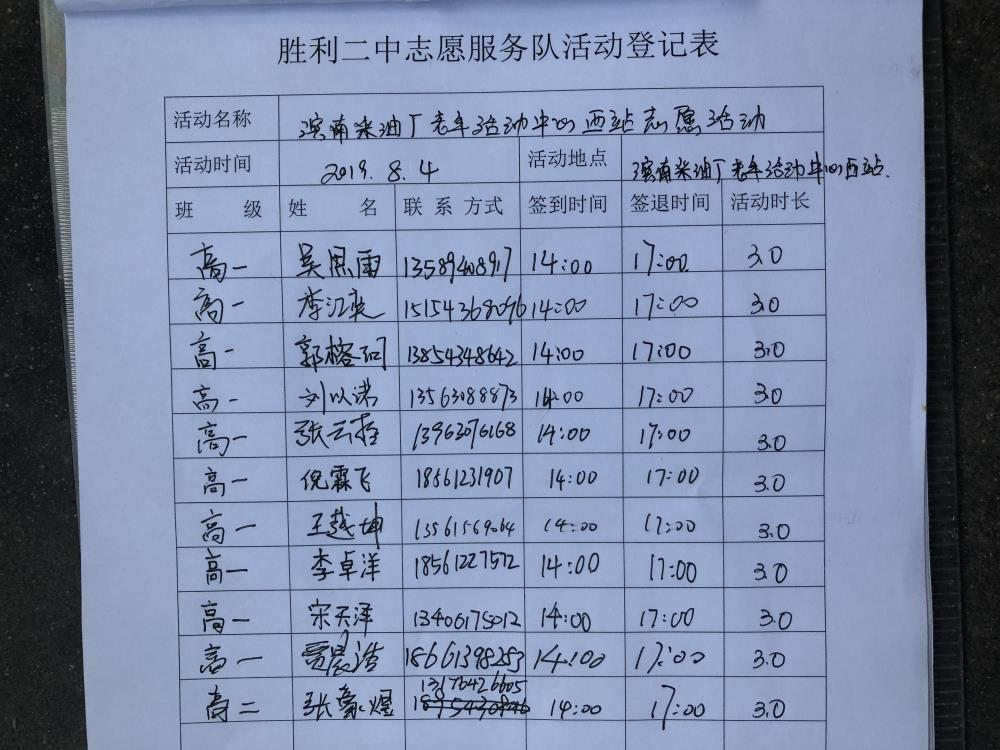 胜利二中志愿服务队活动登记表
活动名称 滨南采油厂老年活动中心西站志愿活动
活动时间 2019.8.4 活动地点 滨南采油厂老年活动中心西站.
班 级 姓 名 联 系 方式 签到时间 签退时间 活动时长
高一 吴思雨 13589408917 14:00 17:00 3.0
高一 李江奕 15154368096 14:00 17:00 3.0
高一 郭榕 13854348642 14:00 17:00 3.0
高一 刘以诺 13563088873 14:00 17:00 3.0
高一 张云 13963076168 14:00 17:00 3.0
高一 倪霖飞 18561231907 14:00 17:00 3.0
高一 王越坤 13561569064 14:00 17:00 3.0
高一 李卓洋 18561227572 14:00 17:00 3.0
高一 宋天泽 13406175012 14:00 17:00 3.0
高一 贾晨浩 18661398283 14:00 17:00 3.0
高二 张豪煜 13176426605 14:00 17:00 3.0